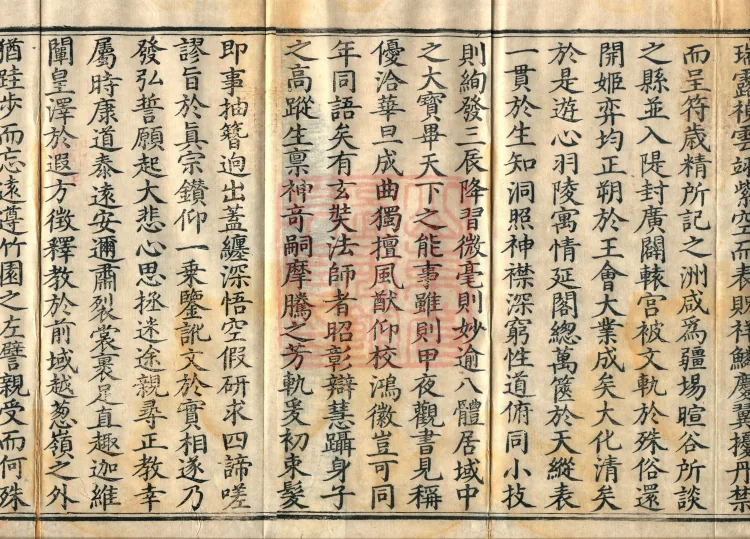 瑞露祥雲翊紫空而表貺祥鱗慶翼擾丹禁
而呈符歲精所記之洲咸為疆場暄谷所談
之縣並入隄封廣闢轅宮被文軌於殊俗還
開姬弈均正朔於王會大業成矣大化清矣
於是遊心羽陵寓情延閣總萬篋於天縱表
一貫於生知洞照神襟深窮性道俯同小技
則絢發三辰降習微毫則妙逾八體居域中
之大寶畢天下之能事雖則甲夜觀書見稱
優洽華旦成曲獨擅風猷仰校鴻徽豈可同
年同語矣有玄奘法師者昭彰辯慧躡身子
之高蹤生稟神奇嗣摩騰之芳軌爰初束髮
即事抽簪逈出蓋纏深悟空假研求四諦嗟
謬旨於真宗鑽仰一乘鑒訛文於實相遂乃
發弘誓願起大悲心思拯迷途親尋正教幸
屬時康道泰遠安邇肅裂裳裹足直趣迦維
闡皇澤於遐方徵釋教於前域越葱嶺之外
猶跬步而忘遠遵竹園之左譬親受而何殊